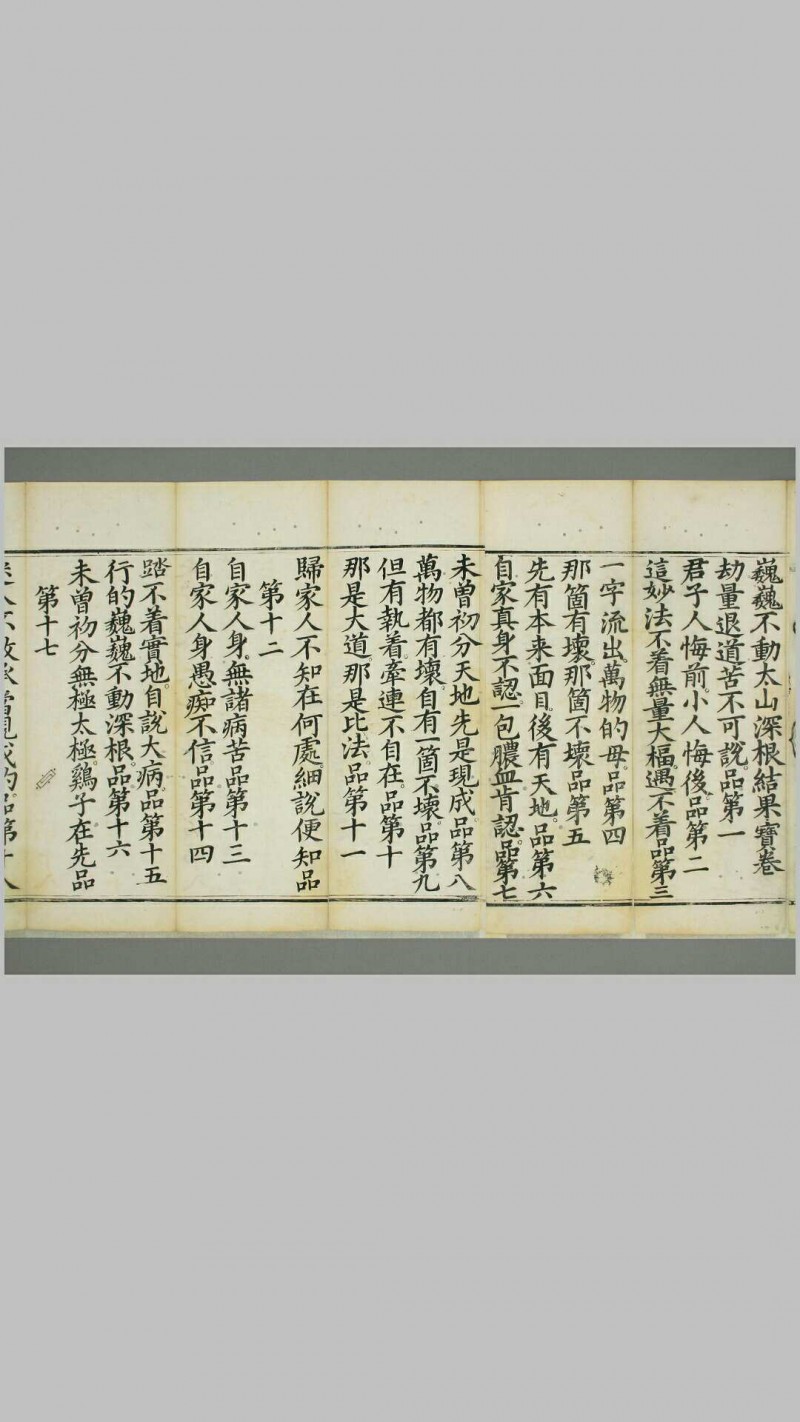 巍巍不動太山深根結果寶卷
劫量退道苦不可說品第一
君子人悔前小人悔後品第二
這妙法不着無量大福遇不着品第三
一字流出萬物的母品第四
那箇有壞那箇不壞品第五
先有本来面目後有天地品第六
自家真身不認一包膿血肯認品第七
未曾初分天地先是現成品第八
萬物都有壞自有一箇不壞品第九
但有執着牽連不自在品第十
那是大道那是比法品第十一
歸家人不知在何處細說便知品
第十二
自家人身無諸病苦品第十三
自家人身愚痴不信品第十四
踏不着實地自說大病品第十五
行的巍巍不動深根品第十六
未曾初分無極太極鷄子在先品
第十七